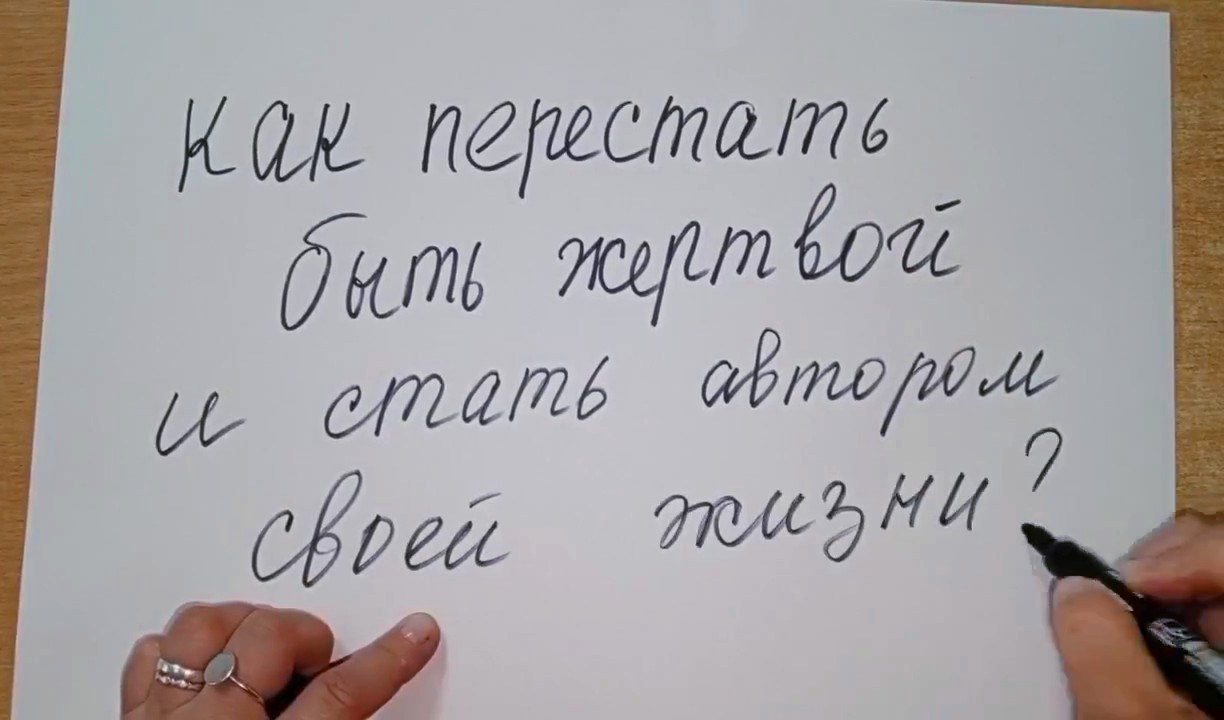 Как перестать
быть жертвой
и стать автором
своей жизни?